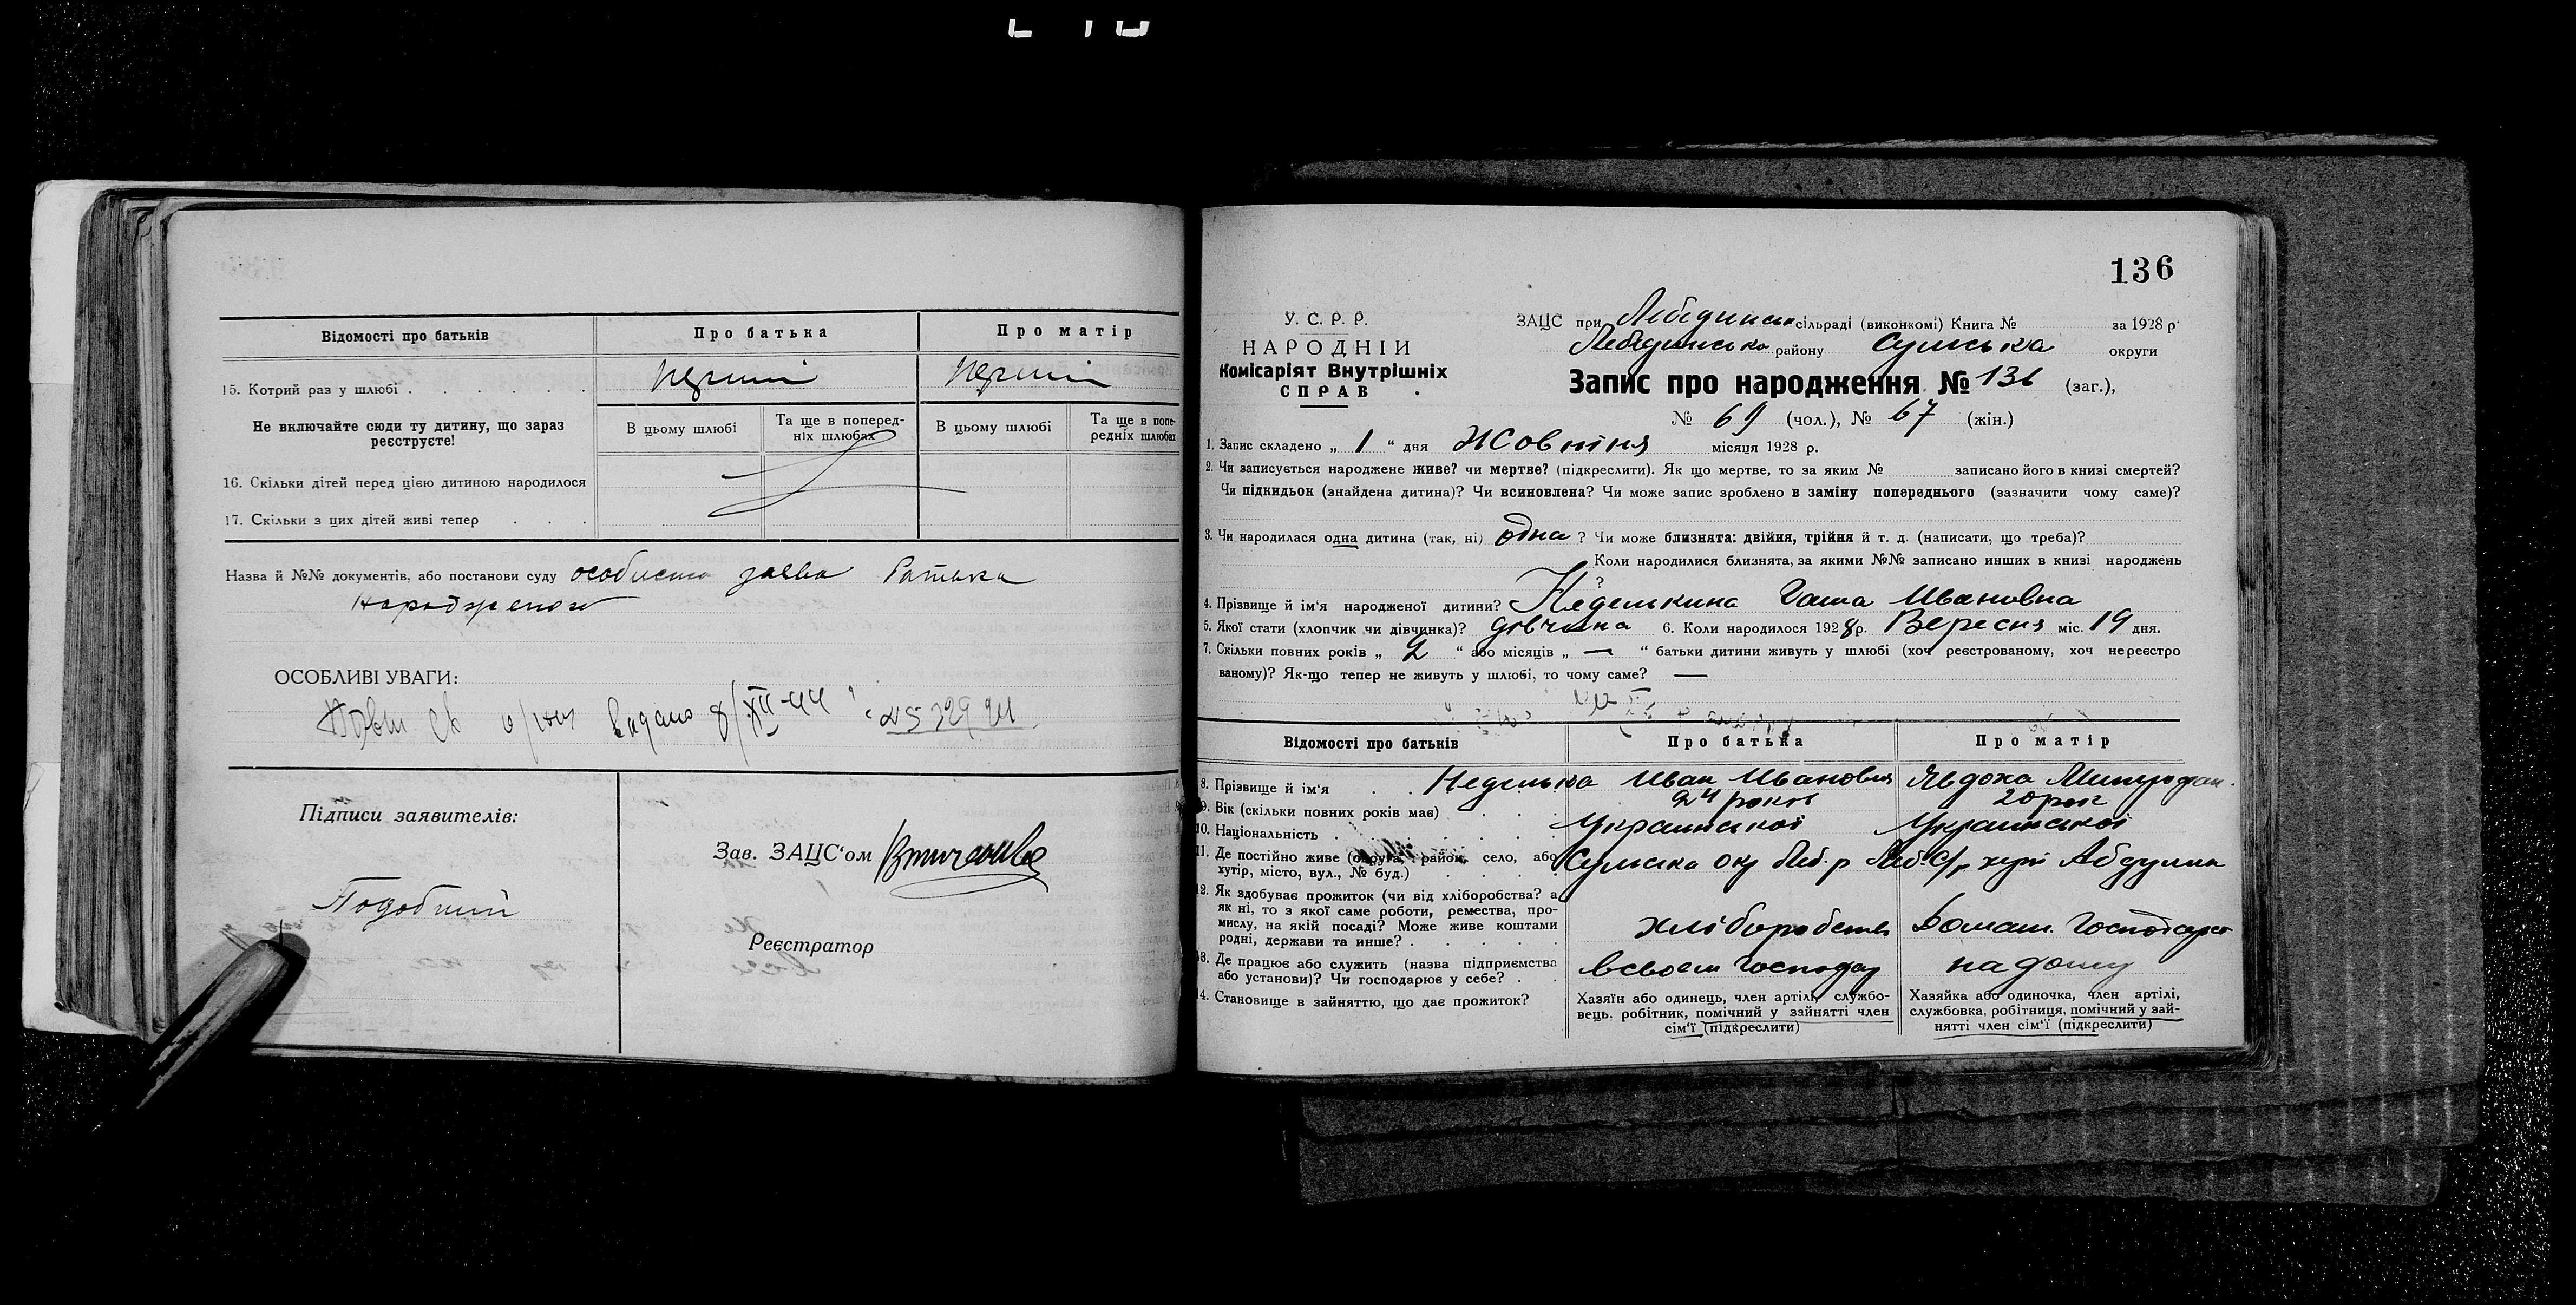 Відомості про батьків
Про батька
Про матір
15. Котрий раз у шлюбі
перший
перший
Не включайте сюди ту дитину, що зараз реєструєте!
В цьому шлюбі
Та ще в поперед-
ніх шлюбах
В цьому шлюбі
Та ще в попе-
редніх шлюбах
16. Скільки дітей перед цією дитиною народилося
17. Скільки з цих дітей живі тепер
Назва й №№ документів, або постанови суду особиста заява Батька
ОСОБЛИВІ УВАГИ:
видано 8/XII-44
Підписи заявителів:
Зав. ЗАЦС'ом
Реєстратор
136
У. С. Р. Р.
НАРОДНІЙ
Комісаріят Внутрішніх
СПРАВ
ЗАЦС при Лебединськ сільраді (виконкомі) Книга № за 1928 р.
Лебединсько району Сумська округи
Запис про народження № 136 (заг.),
№ 69 (чол.), № 67 (жін.)
1. Запис складено „ 1 “ дня Жовтня місяця 1928 р.
2. Чи записується народжене живе? чи мертве? (підкреслити). Як що мертве, то за яким № записано його в книзі смертей?
Чи підкидьок (знайдена дитина)? Чи всиновлена? Чи може запис зроблено в заміну попереднього (зазначити чому саме)?
3. Чи народилася одна дитина (так, ні) одна ? Чи може близнята: двійня, трійня й т. д. (написати, що треба)?
Коли народилися близнята, за якими №№ записано инших в книзі народжень
?
4. Прізвище й ім'я народженої дитини? Неделькина Гаша Ивановна
5. Якої стати (хлопчик чи дівчинка)? дівчина 6. Коли народилося 1928 р. Вересня міс. 19 дня.
7. Скільки повних років „ 2 “ або місяців „ — “ батьки дитини живуть у шлюбі (хоч реєстрованому, хоч нереєстро
ваному)? Як-що тепер не живуть у шлюбі, то чому саме? —
Відомості про батьків
Про батька
Про матір
8. Прізвище й ім'я Неделька Иван Иванович Явдоха Митрофан.
9. Вік (скільки повних років має) 24 років 20 рок
10. Національність Української Української
11. Де постійно живе (округа, район, село, або
хутір, місто, вул., № буд.)
Сумська окр Леб. р Леб. С/р хут
12. Як здобуває прожиток (чи від хліборобства? а
як ні, то з якої саме роботи, ремества, про-
мислу, на якій посаді? Може живе коштами
родні, держави та инше?
хліборобств
Домаш. Господарст
13. Де працює або служить (назва підприємства
або установи)? Чи господарює у себе?
всвоем господар
на дому
14. Становище в зайняттю, що дає прожиток?
Хазяїн або одинець, член артілі, службо-
вець, робітник, помічний у зайнятті член
сім'ї (підкреслити)
Хазяйка або одиночка, член артілі,
службовка, робітниця, помічний у зай-
нятті член сім'ї (підкреслити)